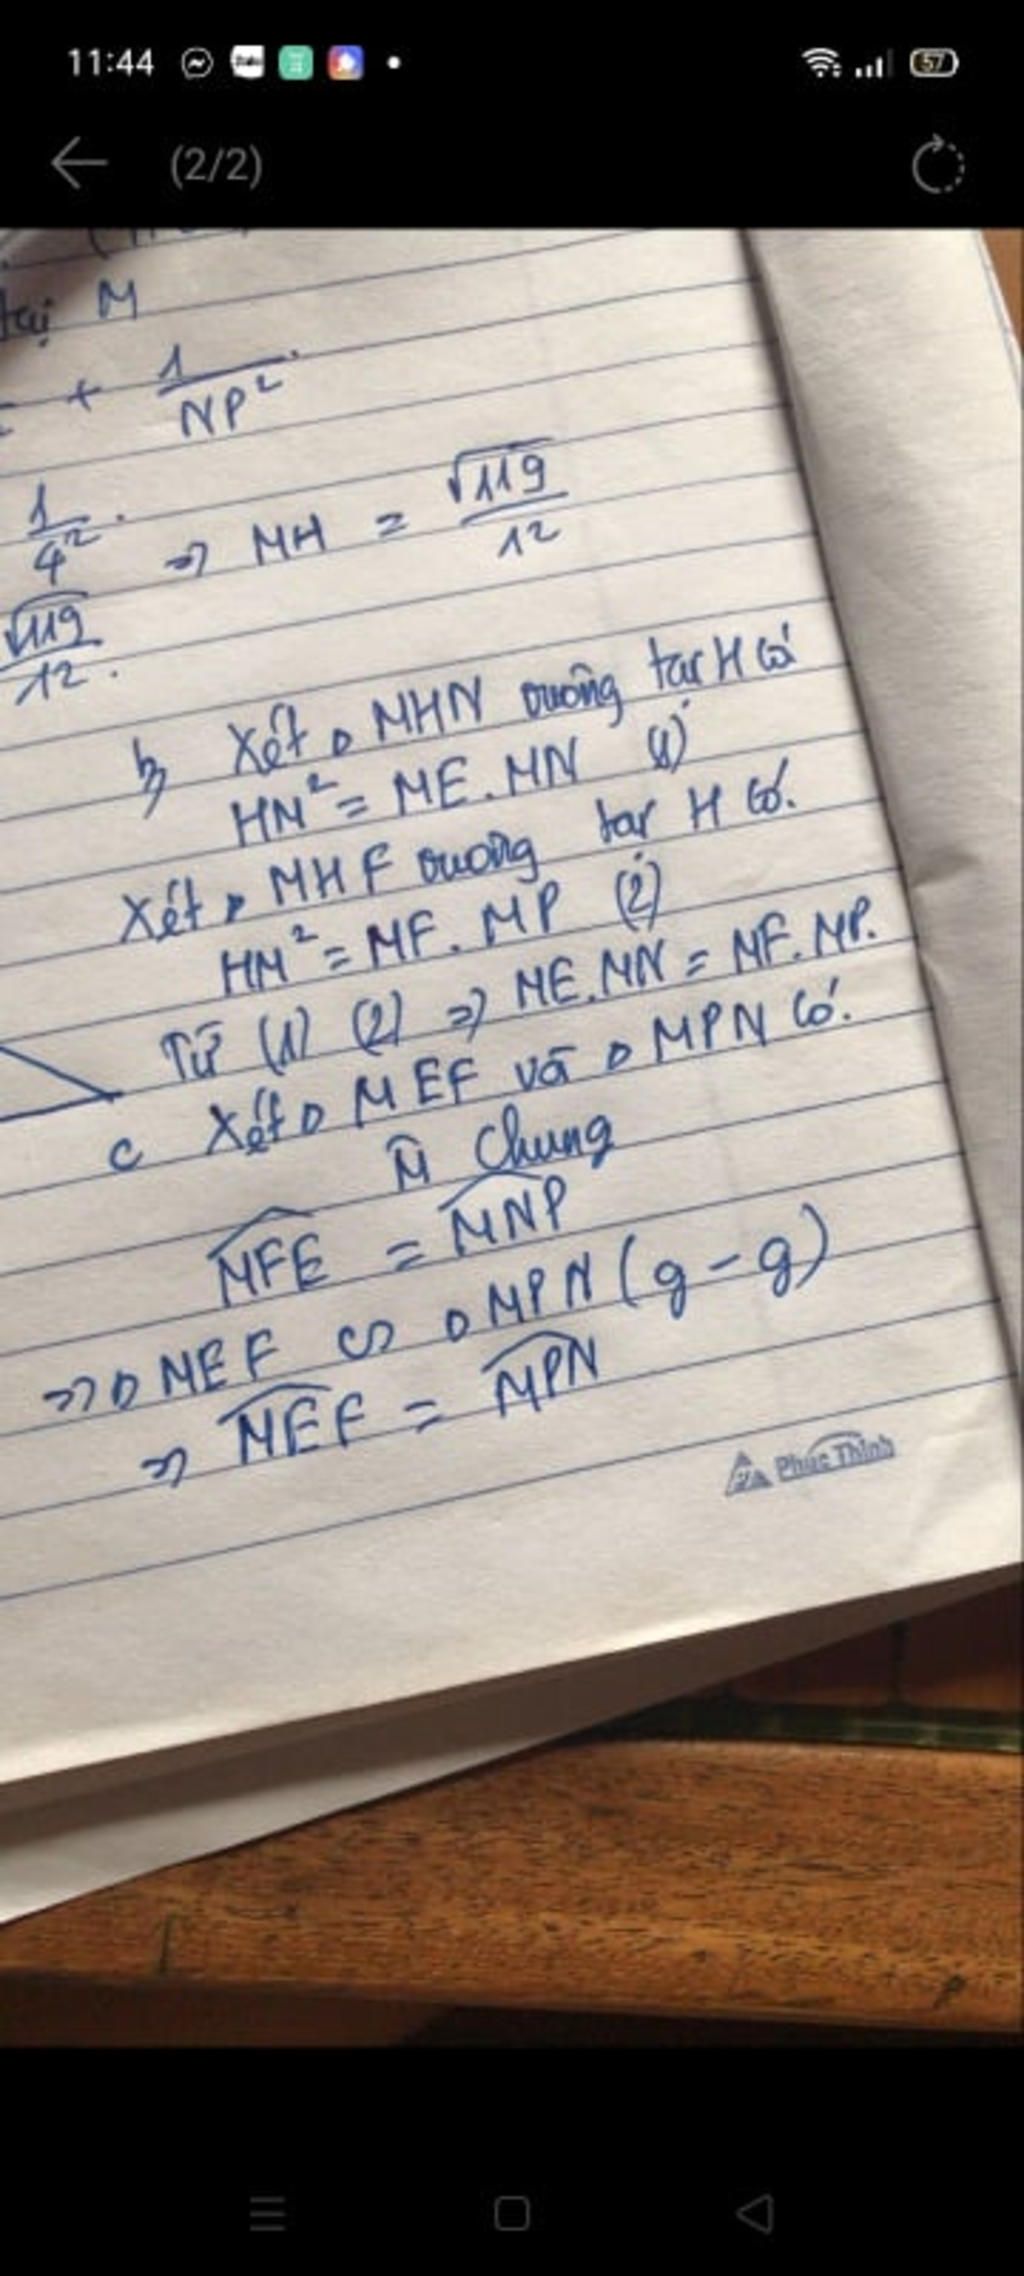 11:44
57
(2/2)
tại M
+ 1/NP²
1/4² . => MH = √119/12
√119/12 .
b, Xét Δ MHN vuông tại H có
HM² = ME . MN (1)
Xét Δ MHF vuông tại H có.
HM² = MF . MP (2)
Từ (1) (2) => ME.MN = MF.MP.
c Xét Δ MEF và Δ MPN có.
M̂ chung
MFE = MNP
=> Δ MEF ∽ Δ MPN (g-g)
=> MEF = MPN
Phúc Thịnh